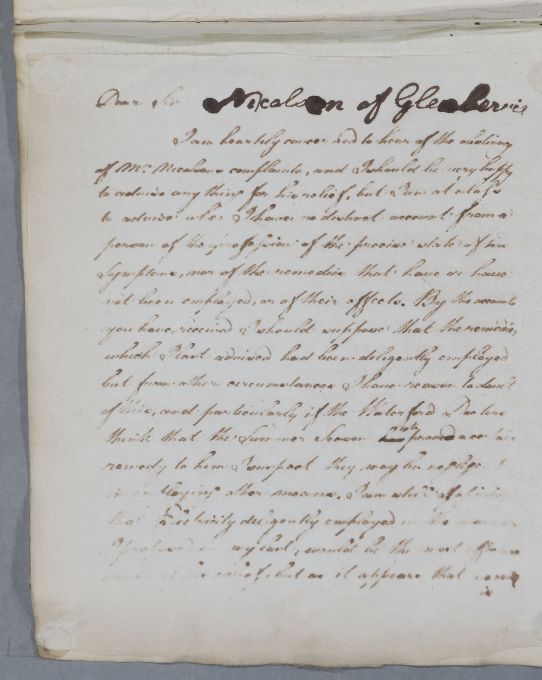 Dear Sir Nicolson of Glenbervie
I am heartily concerned to hear of the obstinacy
of Mr. Nicolsons complaints, and I should be very happy
to advise any thing for his relief, but I am at a loss
to advise when I have no distinct account from a
person of the profession of the precise state of his
Symptoms, nor of the remedies that have or have
not been employed, or of their effects. By the accounts
you have received I should suppose that the remedies
which I last advised had been diligently employed
but from other circumstances I have reason to doubt
of this, and particularly if the Waterford Doctors
think that the Summer Season proved a certain
remedy to him I suspect they may be neglige
in employing other means. I am still of opinion
that Electricity diligently employed in the manner
I proposed in my last, would be the most effectual
means of his relief, but as it appears that